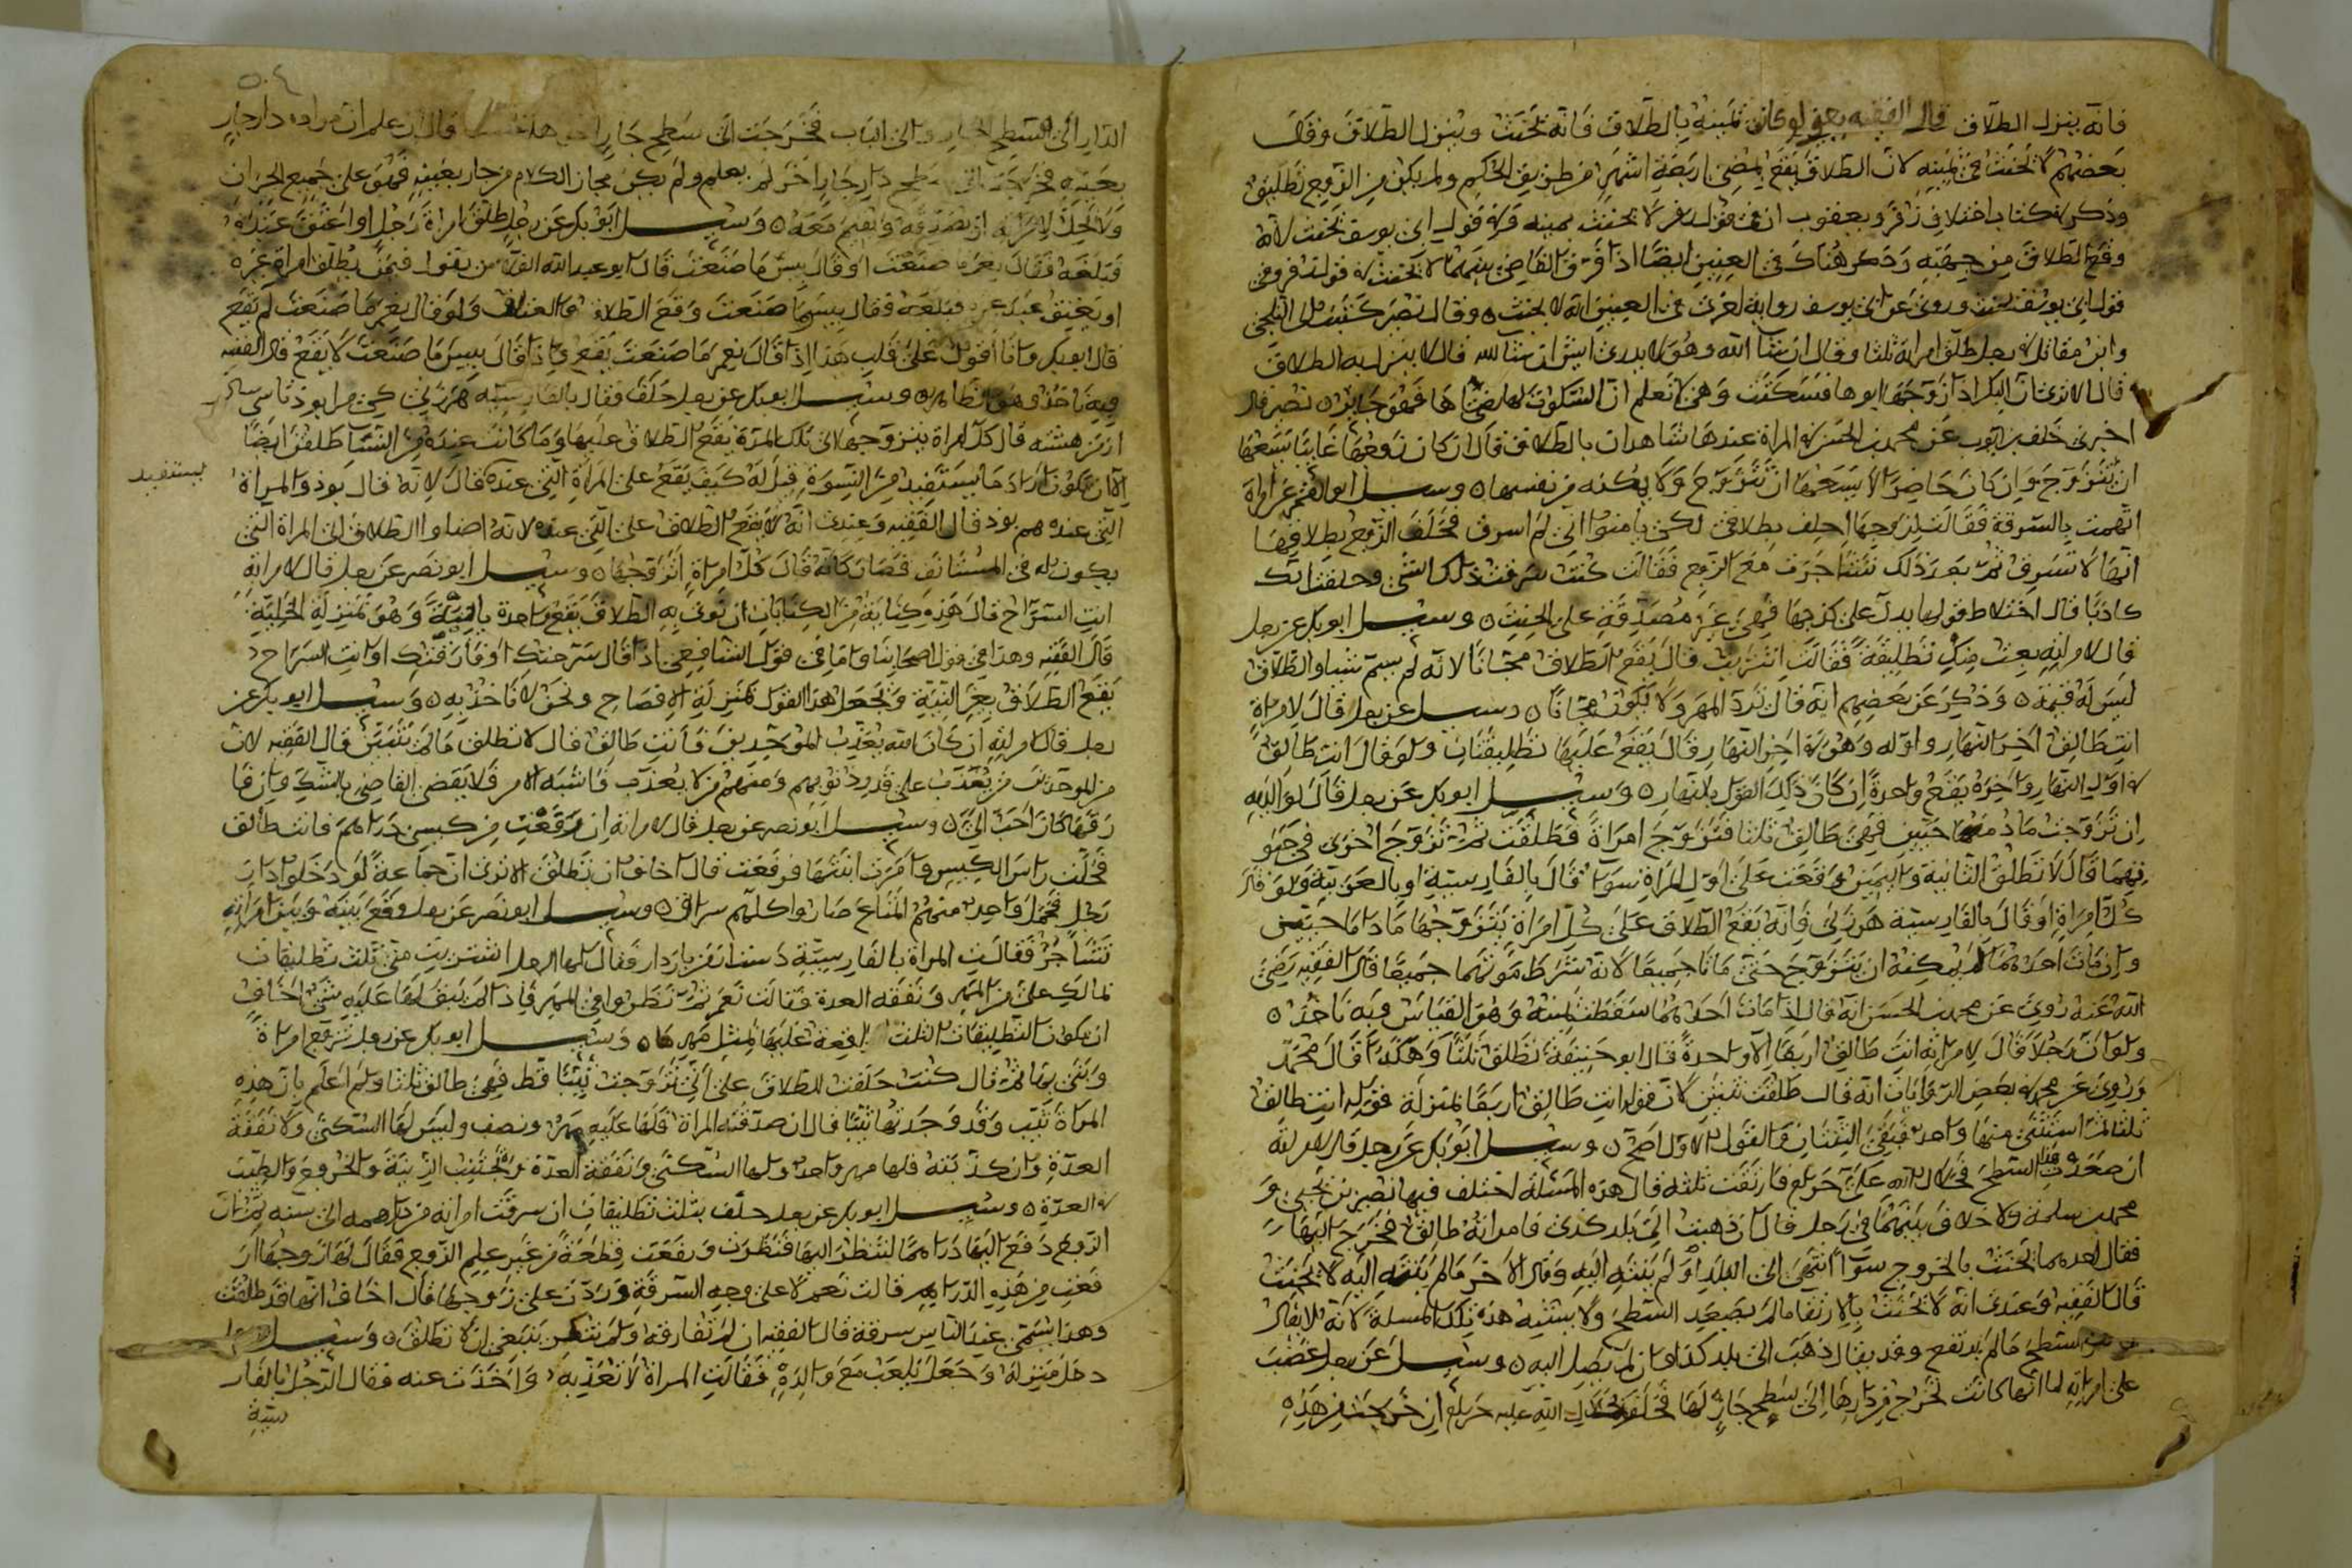 فانه ينزل الطلاق قال الفقيه يعني لو كان يمينه بالطلاق فانه يحنث وينزل الطلاق وقال
بعضهم لا يحنث في يمينه لان الطلاق يقع بمضي اربعة اشهر من طريق الحكم ولم يكن من الزوج تطليق
وذكر في كتاب اختلاف زفر ويعقوب ان في قول زفر لا يحنث بيمينه وفي قول ابي يوسف يحنث لانه
وقع الطلاق من جهته وذكر هناك في العنين ايضا اذا فرق القاضي بينهما لا يحنث في قول زفر وفي
قول ابي يوسف يحنث وروي عن ابي يوسف رواية اخرى في العنين انه لا يحنث وقال نصر كتبت الى الثلجي
وابن مقاتل في رجل طلق امراته ثلثا وقال ان شا الله وهو لا يدري ايش ان شا الله قال لا ينزل به الطلاق
قال الا ترى ان البكر اذا زوجها ابوها فسكتت وهي لا تعلم ان السكوت لها رضا ها فهو جايز نصر قال
اخبرني خلف بن ايوب عن محمد بن الحسن في المراة عندها شاهدان بالطلاق قال ان كان زوجها غايبا يسعها
ان تتزوج وان كان حاضرا لا يسعها ان تتزوج ولا يمكنه من نفسها وسيل ابو القسم عن امراة
اتهمت بالسرقة فقالت لزوجها احلف بطلاقي لكي يامنوا اني لم اسرق فحلف الزوج بطلاقها
انها لا تسرق ثم بعد ذلك تشاجرت مع الزوج فقالت كنت سرقت ذلك الشي وحلفت انك
كاذبا قال اختلاط قولها يدل على كذبها فهي غير مصدقة على الحنث وسيل ابو بكر عن رجل
قال لامراته بعت منك تطليقة فقالت اشتريت قال يقع الطلاق مجانا لانه لم يسم شيا والطلاق
ليس له قيمة وذكر عن بعضهم انه قال ترد المهر ولا يكون مجانا وسيل عن رجل قال لامراة
انت طالق اخر النهار واوله وهو في اخر النهار قال يقع عليها تطليقتان ولو قال انت طالق
في اول النهار واخره يقع واحدة ان كان ذلك القول بالنهار وسيل ابو بكر عن رجل قال لوالديه
ان تزوجت ما دمتما حيين فهي طالق ثلثا فتزوج امراة فطلقت ثم تزوج اخرى في حيو
تهما قال لا تطلق الثانية واليمين وقعت على اول المراة سوا قال بالفارسية او بالعربية ولو قال
كل امراة او قال بالفارسية هرزني فانه يقع الطلاق على كل امراة يتزوجها ما داما حيتين
وان مات احدهما لم يمكنه ان يتزوج حتى ماتا جميعا لانه شرط موتهما جميعا قال الفقيه رضي
الله عنه روي عن محمد بن الحسن انه قال اذا مات احدهما سقطت يمينه وهو القياس وبه ناخذ
ولو ان رجلا قال لامراته انت طالق اربعا الا واحدة قال ابو حنيفة تطلق ثلثا وهكذا قال محمد
وروي عن محمد في بعض الروايات انه قال طلقت ثنتين لان قوله انت طالق اربعا بمنزلة قوله انت طالق
ثلثا ثم استثنى منها واحدة فبقي الثنتان والقول الاول اصح وسيل ابو بكر عن رجل قال لامراته
ان صعدت هذا السطح فحلال الله علي حرام فارتقت ثلثه قال هذه المسئلة اختلف فيها نصير بن يحيى و
محمد بن سلمة والاختلاف بينهما في رجل قال ان ذهبت الى بلد كذي فامراته طالق فخرج اليها ر
فقال احدهما يحنث بالخروج سوا انتهى الى البلد او لم ينته اليه وقال الاخر ما لم ينته اليه لا يحنث
قال الفقيه وعندي انه لا يحنث بالارتقا ما لم يصعد السطح ولا يشبه هذه تلك المسلة لانه لا يقال
السطح ما لم يرتفع وقد يقال ذهب الى بلد كذا وان لم يصل اليه وسيل عن رجل غضب
على امراته لما انها كانت تخرج من دارها الى سطح جار لها فحلف بحلال الله عليه حرام ان خرجت من هذه
٥٠٤
الدار الى السطح الجار والى الباب فخرجت الى سطح جار اخر قال ان علم ان مراده دار جار
بعينه فخرجت الى سطح دار جار اخر لم يعلم ولم يكن مجاز الكلام من جار بعينه فهو على جميع الجيران
ولا يحل لامراته ان تصدقه وتقيم معه وسيل ابو بكر عن رجل طلق امراة رجل او اعتق عبده
فبلغه فقال نعم ما صنعت او قال بيس ما صنعت قال ابو عبد الله القلاس يقول فيمن يطلق امراة غيره
او يعتق عبد غيره فبلغه فقال بيسما صنعت وقع الطلاق والعتاق ولو قال نعم ما صنعت لم يقع
قال ابو بكر وانا اقول على قلب هذا اذا قال نعم ما صنعت يقع واذا قال بيس ما صنعت لا يقع قال الفقيه
وبه ناخذ وهو الظاهر وسيل ابو بكر عن رجل حلف فقال بالفارسية هرزني كي مرا بوذ تا سي سال
از من هشته قال كل امراة يتزوجها الى تلك المدة يقع الطلاق عليها وما كانت عنده من النسا طلقن ايضا
الا ان يكون اراد ما يستفيد من النسوة قيل له كيف يقع على المراة التي عنده قال لانه قال بوذ والمراة
يستفيد
التي عنده هم بوذ قال الفقيه وعندي انه لا يقع الطلاق على التي عنده لانه اضاف الطلاق الى المراة التي
يكون له في المستانف فصار كانه قال كل امراة اتزوجها وسيل ابو نصر عن رجل قال لامراته
انت السراح قال هذه كناية من الكنايات ان نوى به الطلاق يقع واحدة باينة وهو بمنزلة الخلية
قال الفقيه وهذا في قول اصحابنا واما في قول الشافعي اذا قال سرحتك او فارقتك او انت السراح
يقع الطلاق بغير النية ونجعل هذا القول بمنزلة الافصاح ونحن لا ناخذ به وسيل ابو بكر عن
رجل قال لامراته ان كان الله يعذب الموحدين فانت طالق قال لا تطلق ما لم يتبين قال الفقيه لان
من الموحدين من يعذب على قدر ذنوبهم ومنهم من لا يعذب فاشتبه الامر فلا يقضي القاضي بالشك وان فا
رقها كان احب الي وسيل ابو نصر عن رجل قال لامراته ان رفعت من كيسي دراهم فانت طالق
فحلت راس الكيس وامرت ابنتها فرفعت قال اخاف ان تطلق الا ترى ان جماعة لو دخلوا دار
رجل فحمل واحد منهم المتاع صاروا كلهم سراق وسيل ابو نصر عن رجل وقع بينه وبين امراته
تشاجر فقالت المراة بالفارسية دست از من باز دار فقال لها الرجل اشتريت مني ثلث تطليقات
بما لك علي من المهر ونفقة العدة فقالت نعم ثم نظروا في المهر فاذا لم يبق لها عليه شي اخاف
ان يكون التطليقات الثلث واقعة عليها بمثل مهرها وسيل ابو بكر عن رجل تزوج امراة
وبنى بها ثم قال كنت حلفت بالطلاق على اني تزوجت ثيبا قط فهي طالق ثلثا ولم اعلم بان هذه
المراة ثيب وقد وجدتها ثيبا قال ان صدقته المراة فلها عليه مهر ونصف وليس لها السكنى ولا نفقة
العدة وان كذبته فلها مهر واحد ولها السكنى ونفقة العدة وتجتنب الزينة والخروج والطيب
في العدة وسيل ابو بكر عن رجل حلف بثلث تطليقات ان سرقت امراته من دراهمه الى سنة ثم ان
الزوج دفع اليها دراهما لتنظر اليها فنظرت ورفعت قطعة من غير علم الزوج فقال لها زوجها ار
فعت من هذه الدراهم قالت نعم لا على وجه السرقة وردت على زوجها قال اخاف انها قد طلقت
وهذا يسمى عند الناس سرقة قال الفقيه ان لم تفارقه ولم تنكر ينبغي ان لا تطلق وسيل
دخل منزله وجعل يلعب مع والده فقالت المراة لا تعذبه واخذت عنه فقال الرجل بالفار
سية